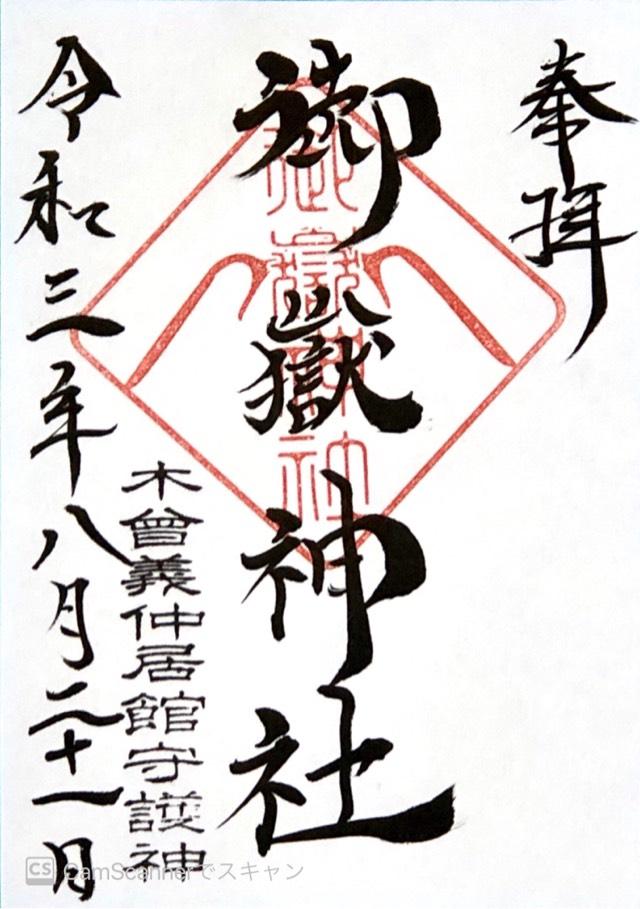 奉拝
御嶽神社
木曾義仲居館守護神
令和三年八月二十一日
CS CamScannerでスキャン